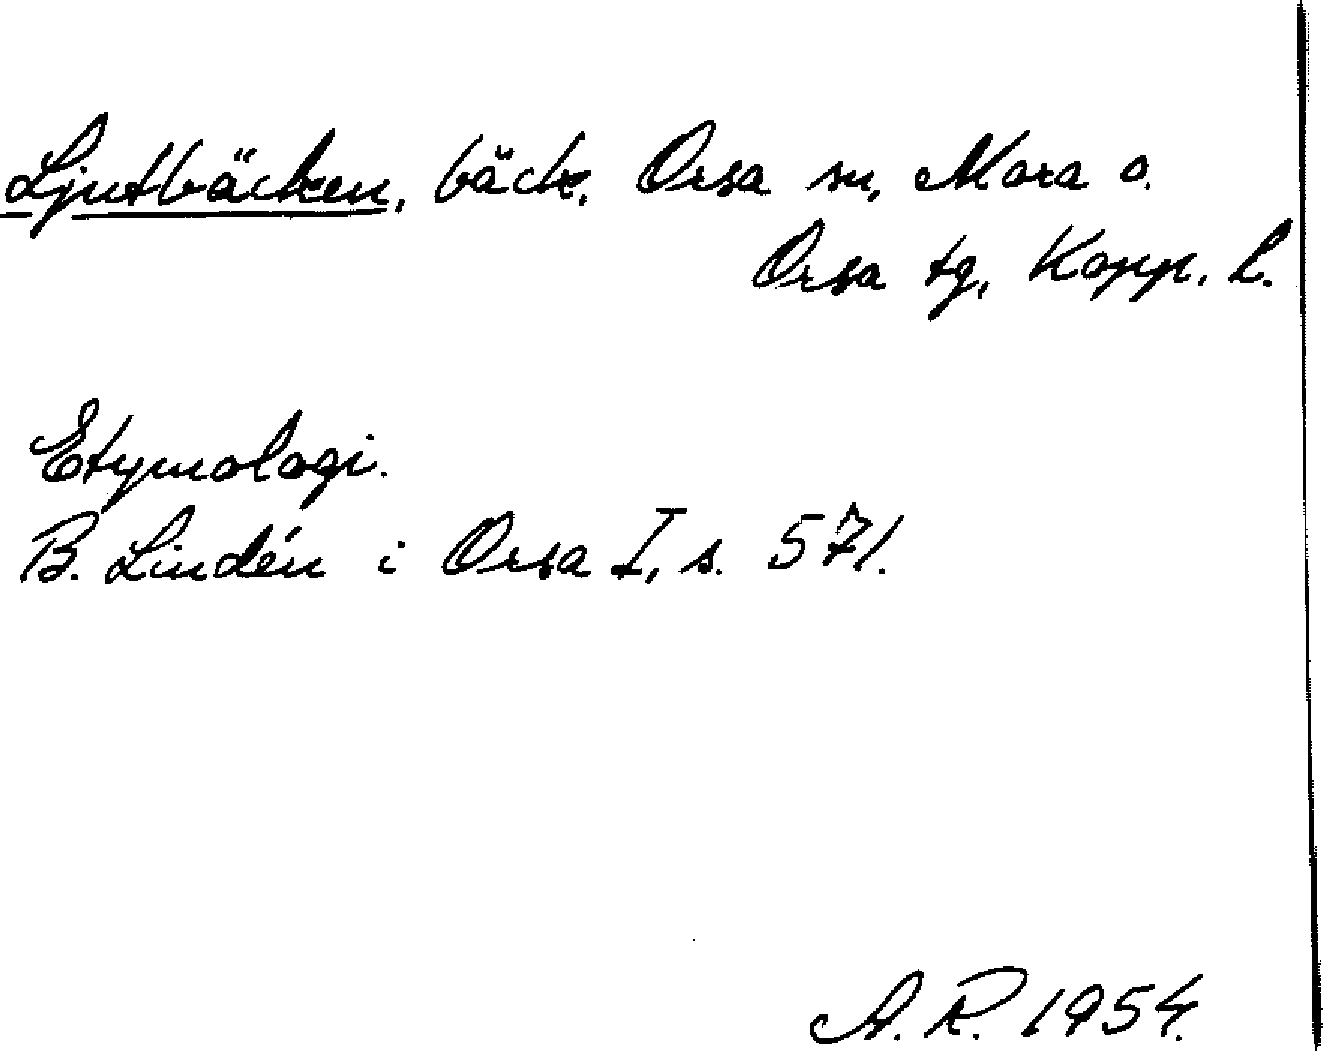 Ljutbäcken, bäck, Orsa sn, Mora o.
Orsa tg, Kopp. l.
Etymologi.
B. Lindén i Orsa I, s. 571.
A. R. 1954.